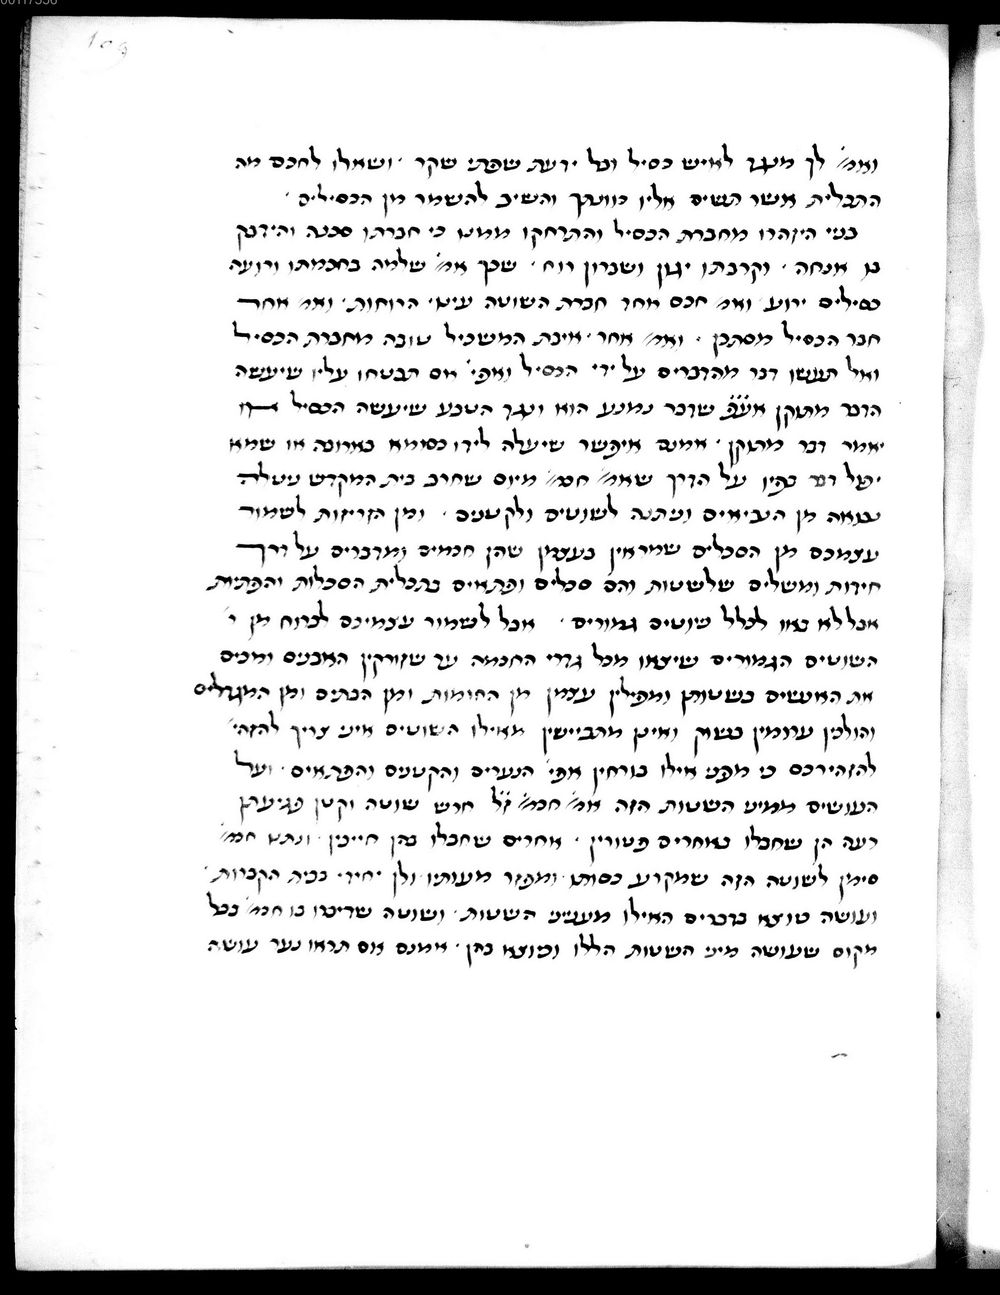 109
ואמ׳ לך מנגד לאיש כסיל ובל ידעת שפתי שקר · ושאלו לחכם מה
התכלית אשר תשים אליו כוונתך והשיב להשמר מן הכסילים ·
בני היזהרו מחברת הכסיל והתרחקו ממנו כי חברתו סכנה והידבק
בו אנחה · וקרבתו יגון ושברון רוח · שכך אמ׳ שלמה בחכמתו ורועה
כסילים ירוע ואמ׳ חכם אחר חברת השוטה הרוחות · ואמ׳ אחר
חבר הכסיל מסתכן · ואמ׳ אחר איבת המשכיל טובה מחברת הכסיל
ואל תעשו דבר מהדברים על ידי הכסיל ואפי׳ אם תבטחו עליו שיעשה
הדבר מתוקן שדבר נמנע הוא ונגד הטבע שיעשה הכסיל או
יאמר דבר מתוקן · אמנם איפשר שיעלה לידו כסומא בארובה או שמא
יפול דבר בפיו על הדרך שאמ׳ חכמ׳ מיום שחרב בית המקדש נטלה
נבואה מן הנביאים וניתנה לשוטים ולקטנים · ומן הזריזות לשמור
עצמכם מן הסכלים שמראין בעצמן שהן חכמים ומדברים על דרך
חידות ומשלים שלשטות והם סכלים ופתאים בתכלית הסכלות והפתיות
אבל לא באו לכלל שוטים גמורים · אבל לשמור עצמיכם לברוח מן
השוטים הגמורים שיצאו מכל גדרי החכמה עד שזורקין האבנים ומכים
את האנשים בשטותן ומפילין עצמן מן החומות ומן הבתים ומן המגדלים
והולכין ערומין בשוק ואינן מתביישין מאילו השוטים איני צריך להזהי׳
להזהירכם כי מפני אילו בורחין אפי׳ הנערים והקטנים והפתאים · ועל
העושים ממיני השטות הזה אמ׳ חכמ׳ ז״ל חרש שוטה וקטן פגיעתן
רעה הן שחבלו באחרים פטורין · אחרים שחבלו בהן חייבין · ונתנו חכמ׳
סימן לשוטה הזה שמקרע כסותו ומפזר מעותיו ולן יחידי בבית הקברות ·
ועושה כיוצא בדברים האילו מענייני השטות · ושוטה שדיברו בו חכמ׳ בכל
מקום שעושה מיני השטות הללו וכיוצא בהן · אמנם אם תראו נער עושה